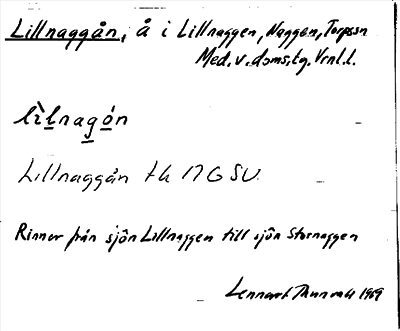 Lillnaggån, å i Lillnaggen, Naggen, Torpssn
Med. v. doms. tg. Vrnl. l.
lìlnagón
Lillnaggån tk 17G SV
Rinner från sjön Lillnaggen till sjön Stornaggen
Lennart Thunvall 1969